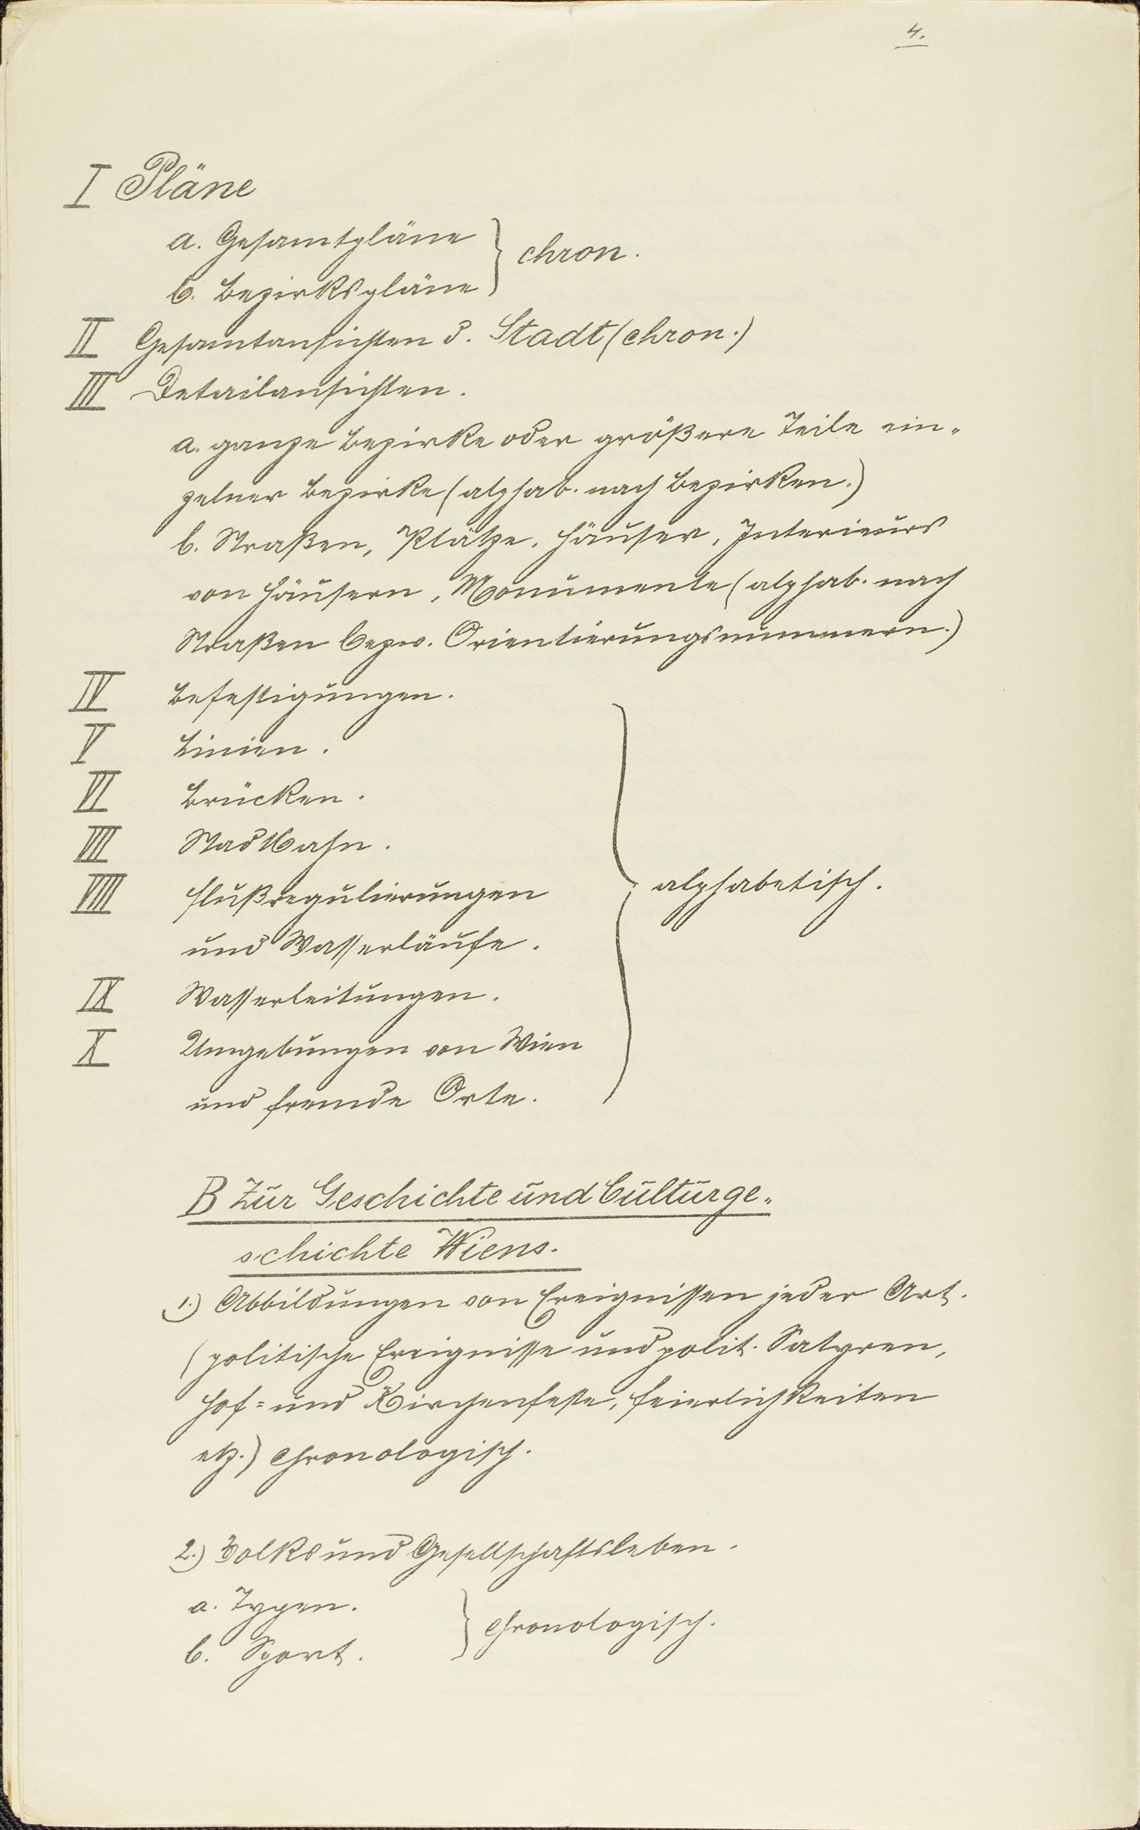 4.
I Pläne
a. Gesamtpläne
b. Bezirkspläne
chron.
II Gesamtansichten d. Stadt (chron.)
III Detailansichten.
a. ganze Bezirke oder größere Teile ein-
zelner Bezirke (alphab. nach Bezirken.)
b. Straßen, Plätze, Häuser, Interieurs
von Häusern, Monumente (alphab. nach
Straßen bezw. Orientierungsnummern.)
IV Befestigungen.
V Linien.
VI Brücken.
VII Stadtbahn.
VIII Flußregulierungen
und Wasserläufe.
alphabetisch.
IX Wasserleitungen.
X Umgebungen von Wien
und fremde Orte.
B Zur Geschichte und Culturge-
schichte Wiens.
1.) Abbildungen von Ereignissen jeder Art.
(politische Ereignisse und polit. Satyren,
Hof- und Kirchenfeste, Feierlichkeiten
etz.) chronologisch.
2.) Volks und Gesellschaftsleben.
a. Typen.
b. Sport.
chronologisch.